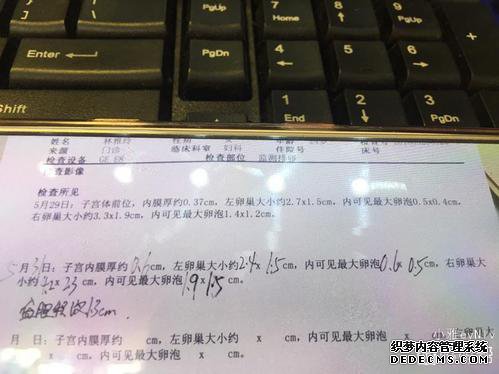 PgUp
7
Home
8
9
PgUp
Enter
PgDn
4
5
6
Shift
1
End
2
3
PgDn
姓名 林雅玲 性别 女 年龄
来源 门诊 临床科室 妇科 住院号
检查设备 GE E8 检查部位 监测排卵 床号
检查影像
检查所见
5月29日：子宫体前位，内膜厚约0.37cm，左卵巢大小约2.7x1.5cm，内可见最大卵泡0.5x0.4cm，
右卵巢大小约3.3x1.9cm，内可见最大卵泡1.4x1.2cm。
5月31日：子宫内膜厚约0.6cm，左卵巢大小约2.4x1.5cm，内可见最大卵泡0.6x0.5cm，右卵巢大
小约3.2x2.3cm，内可见最大卵泡1.9x1.5cm。
月 日：子宫内膜厚约 cm，左卵巢大小约 x cm，内可见最大卵泡 x cm，右卵巢大
小约 x cm，内可见最大卵泡 x cm。